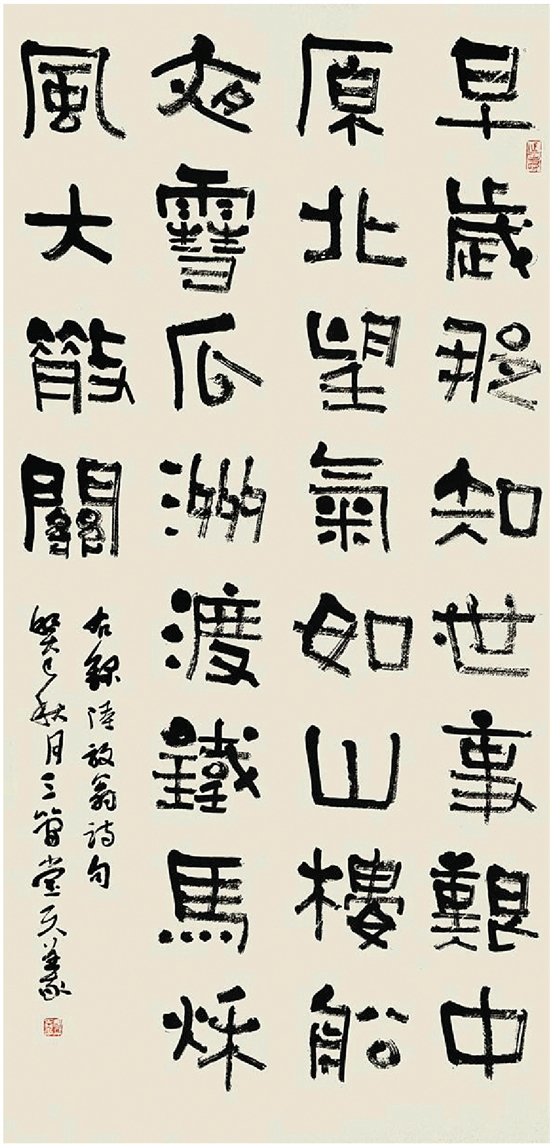 早歲那知世事艱中
原北望氣如山樓船
夜雪瓜洲渡鐵馬秌
風大散關
右錄陸放翁詩句
癸巳秋月三堂天